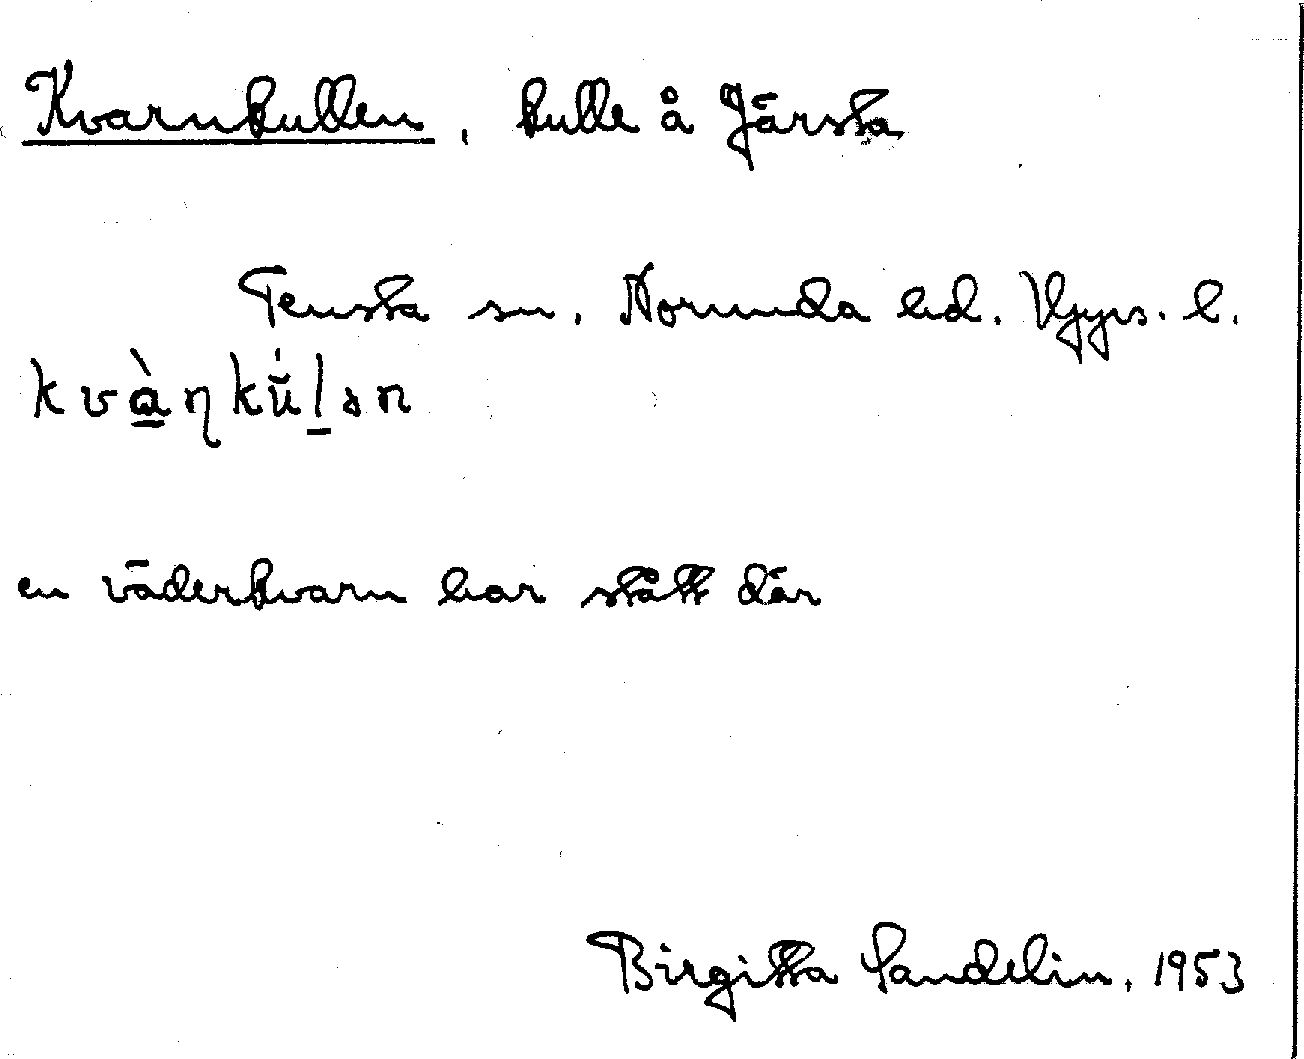 Kvarnkullen, kulle å Järsta
Tensta sn. Norunda hd. Upps. l.
kvàŋkŭ́lən
en väderkvarn har stått där
Birgitta Sandelin, 1953